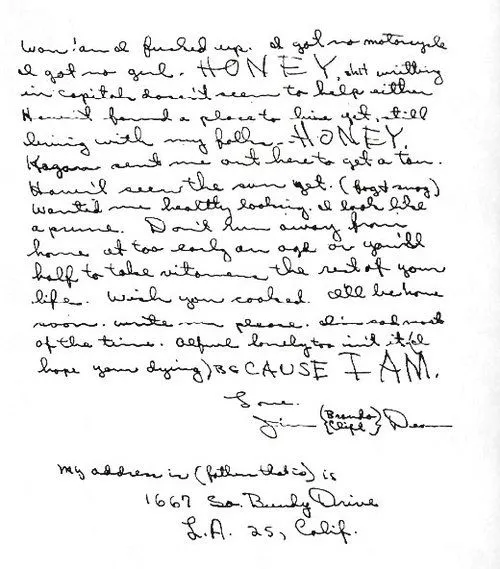 Wow! am I fucked up. I got no motorcycle
I got no girl. HONEY, shit writting
in capitals doesn't seem to help either
Haven't found a place to live yet. still
living with my father. HONEY.
Kazan sent me out here to get a tan.
Haven't seen the sun yet. (fog & smog)
Wanted me healthy looking. I look like
a prune. Don't run away from
home at too early an age or you'll
half to take vitamens the rest of your
life. Wish you cooked. I'll be home
soon. write me please. I'm sad most
of the time. Awful lonely too isn't it (I
hope your dying) BECAUSE I AM.
Love.
Jim (Brando Clift) Dean
my address is (fathers that is) is
1667 So. Bundy Drive
L.A. 25, Calif.